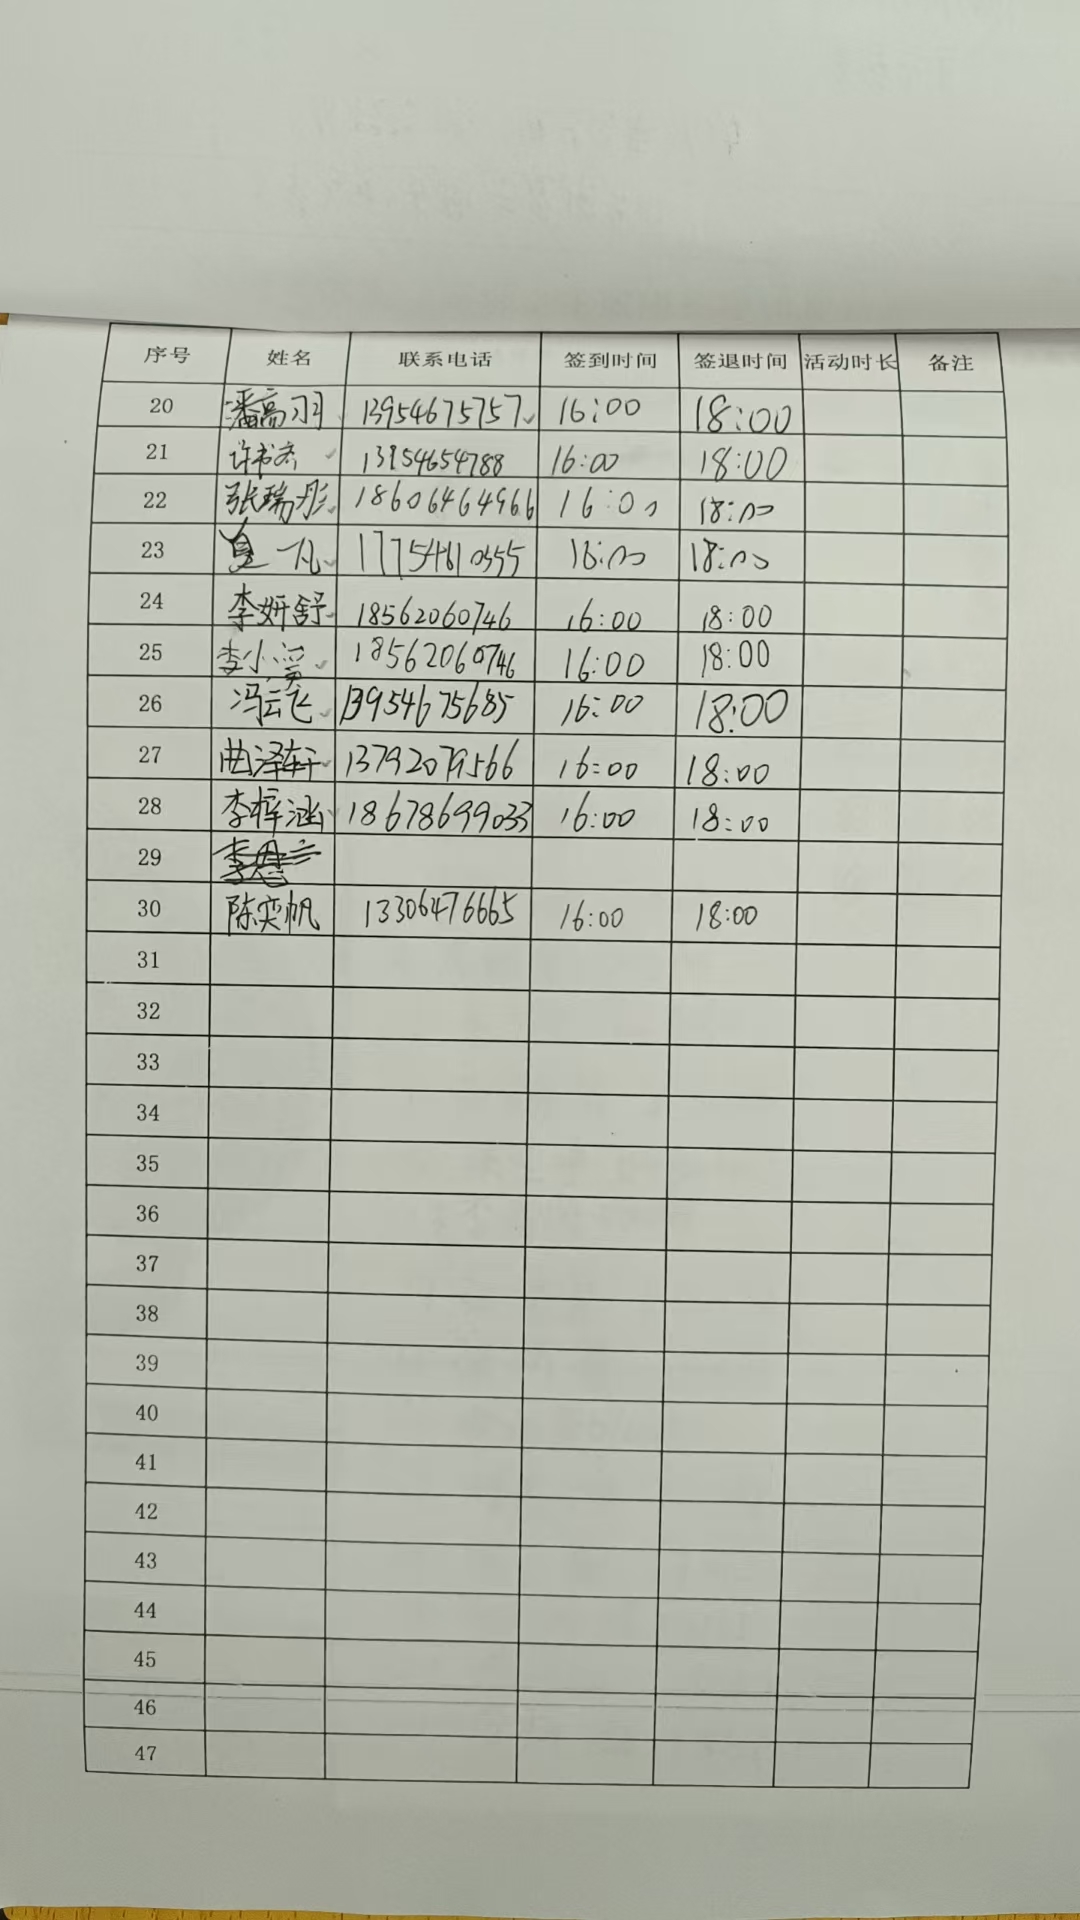 序号 姓名 联系电话 签到时间 签退时间 活动时长 备注
20 潘高羽 13954675757 16:00 18:00
21 许书杰 13954654788 16:00 18:00
22 张瑞彤 18606464966 16:00 18:00
23 一凡 17754610555 16:00 18:00
24 李妍舒 18562060746 16:00 18:00
25 李小溪 18562060746 16:00 18:00
26 冯云飞 13954675685 16:00 18:00
27 曲泽轩 13792079566 16:00 18:00
28 李梓涵 18678699033 16:00 18:00
29
30 陈奕帆 13306476665 16:00 18:00
31
32
33
34
35
36
37
38
39
40
41
42
43
44
45
46
47